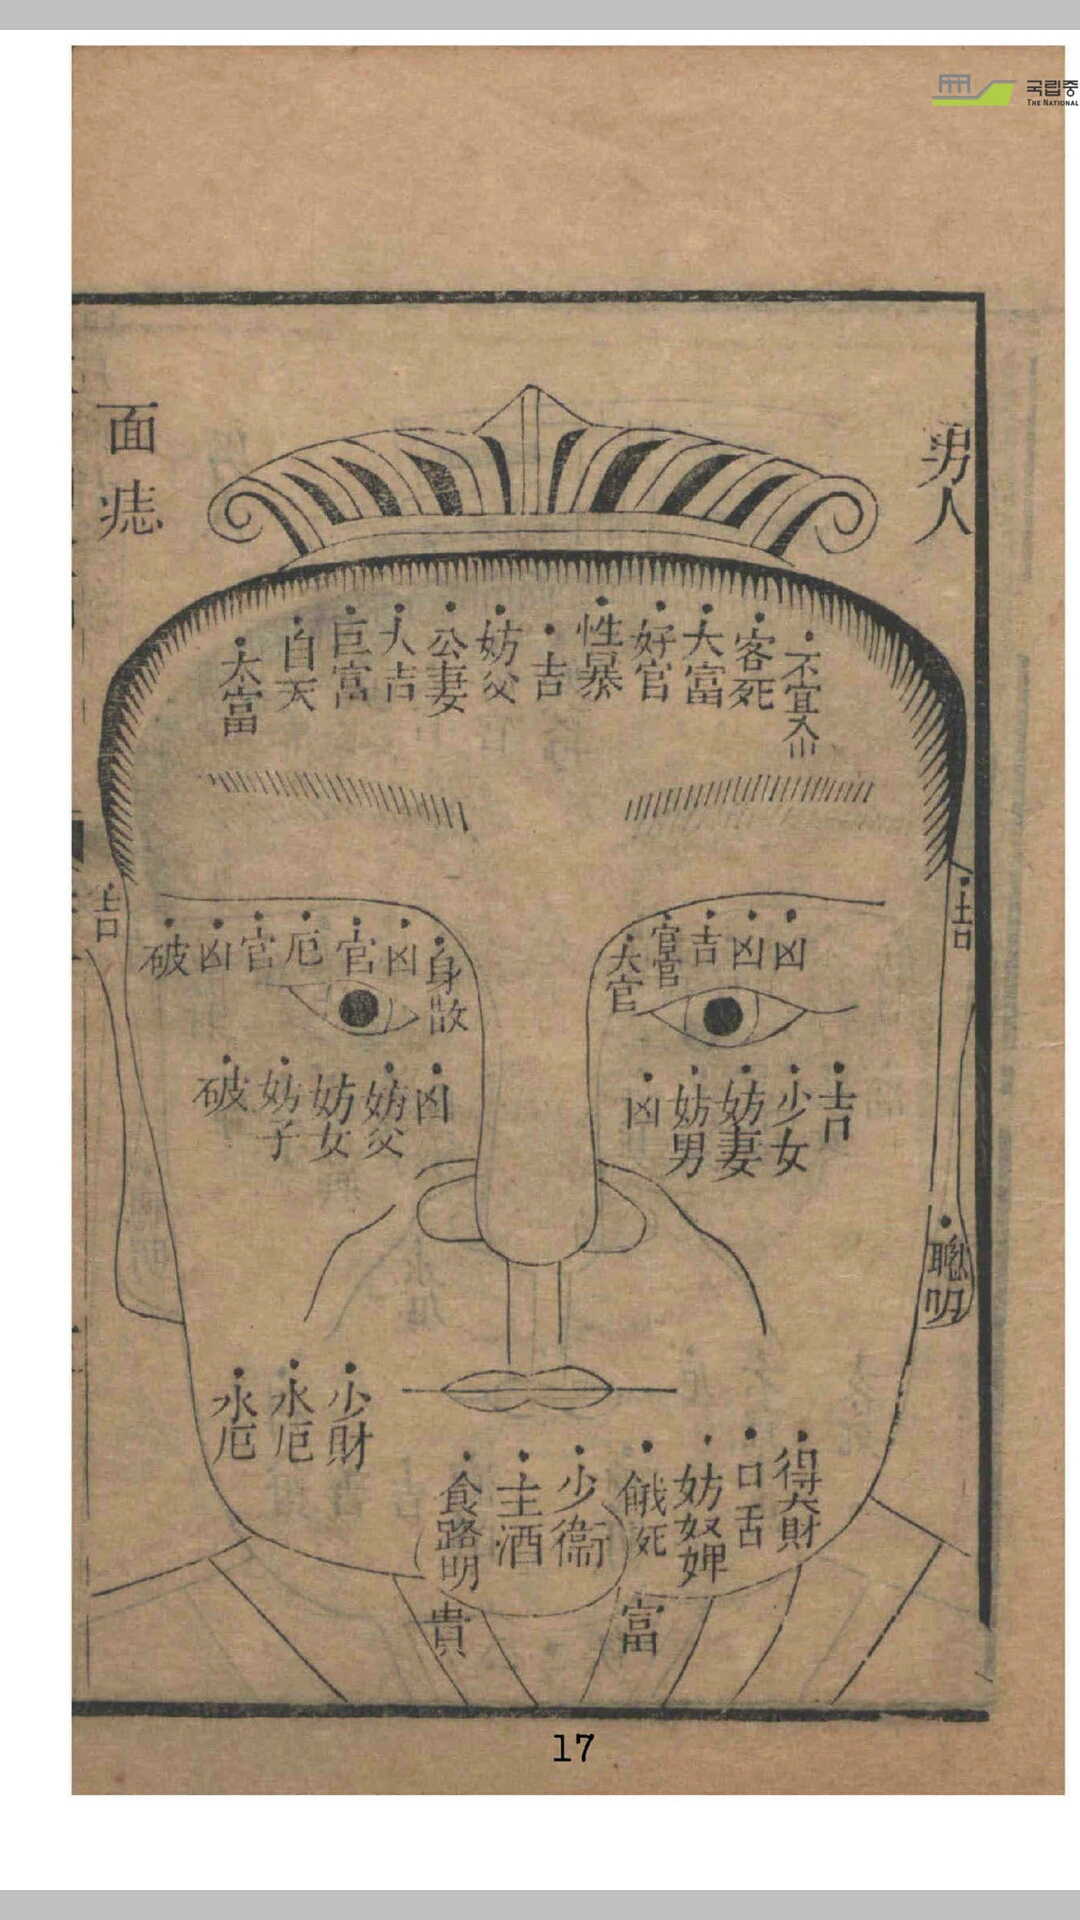 국립중
THE NATIONAL
男人
面痣
不宜入山
客死
大富
好官
性暴
吉
妨父
公妻
大吉
巨富
自天
大富
吉
凶
凶
吉
官
大官
身
凶
官
厄
官
凶
破
吉
吉
少女
妨妻
妨男
凶
凶
妨父
妨女
妨子
破
聰明
少財
水厄
水厄
得大財
口舌
妨奴婢
餓死
少
主酒
食路明
富
貴
17